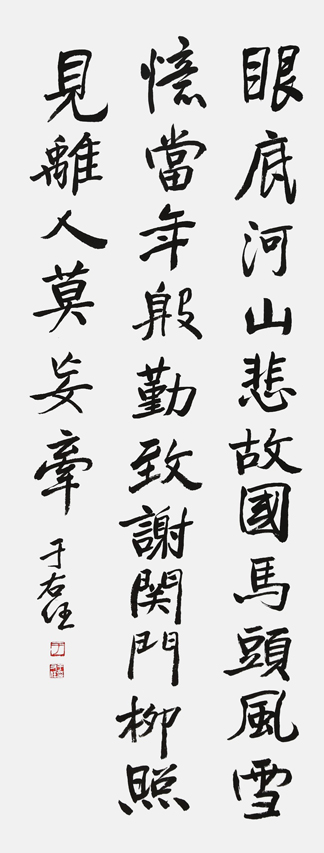 眼底河山悲故國馬頭風雪
憶當年殷勤致謝関門柳照
見離人莫妄牽 于右任